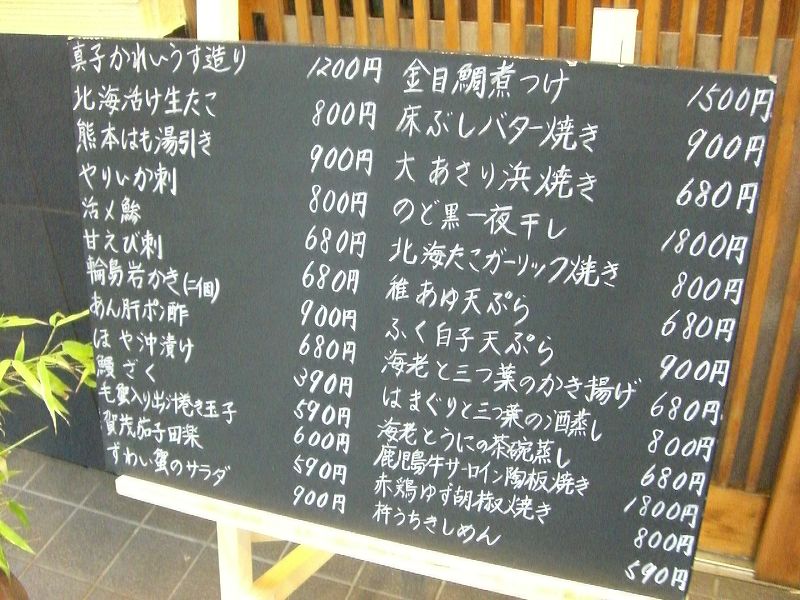 真子かれいうす造り 1200円
北海活け生たこ 800円
熊本はも湯引き 900円
やりいか刺 800円
活〆鯵 680円
甘えび刺 680円
輪島岩かき(二個) 900円
あん肝ポン酢 680円
ほや沖漬け 390円
鰻ざく 590円
毛蟹入り出汁巻き玉子 600円
賀茂茄子田楽 590円
ずわい蟹のサラダ 900円
金目鯛煮つけ 1500円
床ぶしバター焼き 900円
大あさり浜焼き 680円
のど黒一夜干し 1800円
北海たこガーリック焼き 800円
稚あゆ天ぷら 680円
ふく白子天ぷら 900円
海老と三つ葉のかき揚げ 680円
はまぐりと三つ葉の酒蒸し 800円
海老とうにの茶碗蒸し 680円
鹿児島牛サーロイン陶板焼き 1800円
赤鶏ゆず胡椒焼き 800円
杵うちきしめん 590円